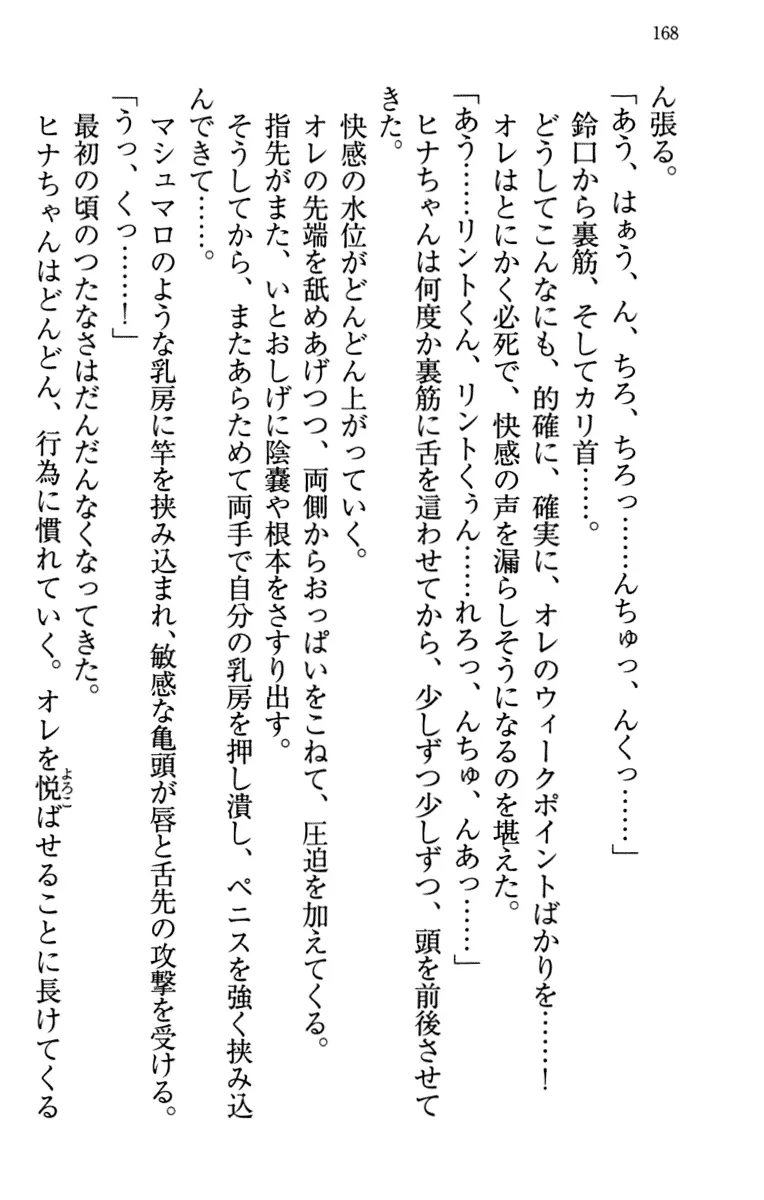 168
ん張る。
「あう、はぁう、ん、ちろ、ちろっ……んちゅっ、んくっ……」
鈴口から裏筋、そしてカリ首……。
どうしてこんなにも、的確に、確実に、オレのウィークポイントばかりを……！
オレはとにかく必死で、快感の声を漏らしそうになるのを堪えた。
「あう……リントくん、リントくぅん……れろっ、んちゅ、んあっ……」
ヒナちゃんは何度か裏筋に舌を這わせてから、少しずつ少しずつ、頭を前後させて
きた。
快感の水位がどんどん上がっていく。
オレの先端を舐めあげつつ、両側からおっぱいをこねて、圧迫を加えてくる。
指先がまた、いとおしげに陰嚢や根本をさすり出す。
そうしてから、またあらためて両手で自分の乳房を押し潰し、ペニスを強く挟み込
んできて……。
マシュマロのような乳房に竿を挟み込まれ、敏感な亀頭が唇と舌先の攻撃を受ける。
「うっ、くっ……！」
最初の頃のつたなさはだんだんなくなってきた。
ヒナちゃんはどんどん、行為に慣れていく。オレを悦ばせることに長けてくる
よろこ